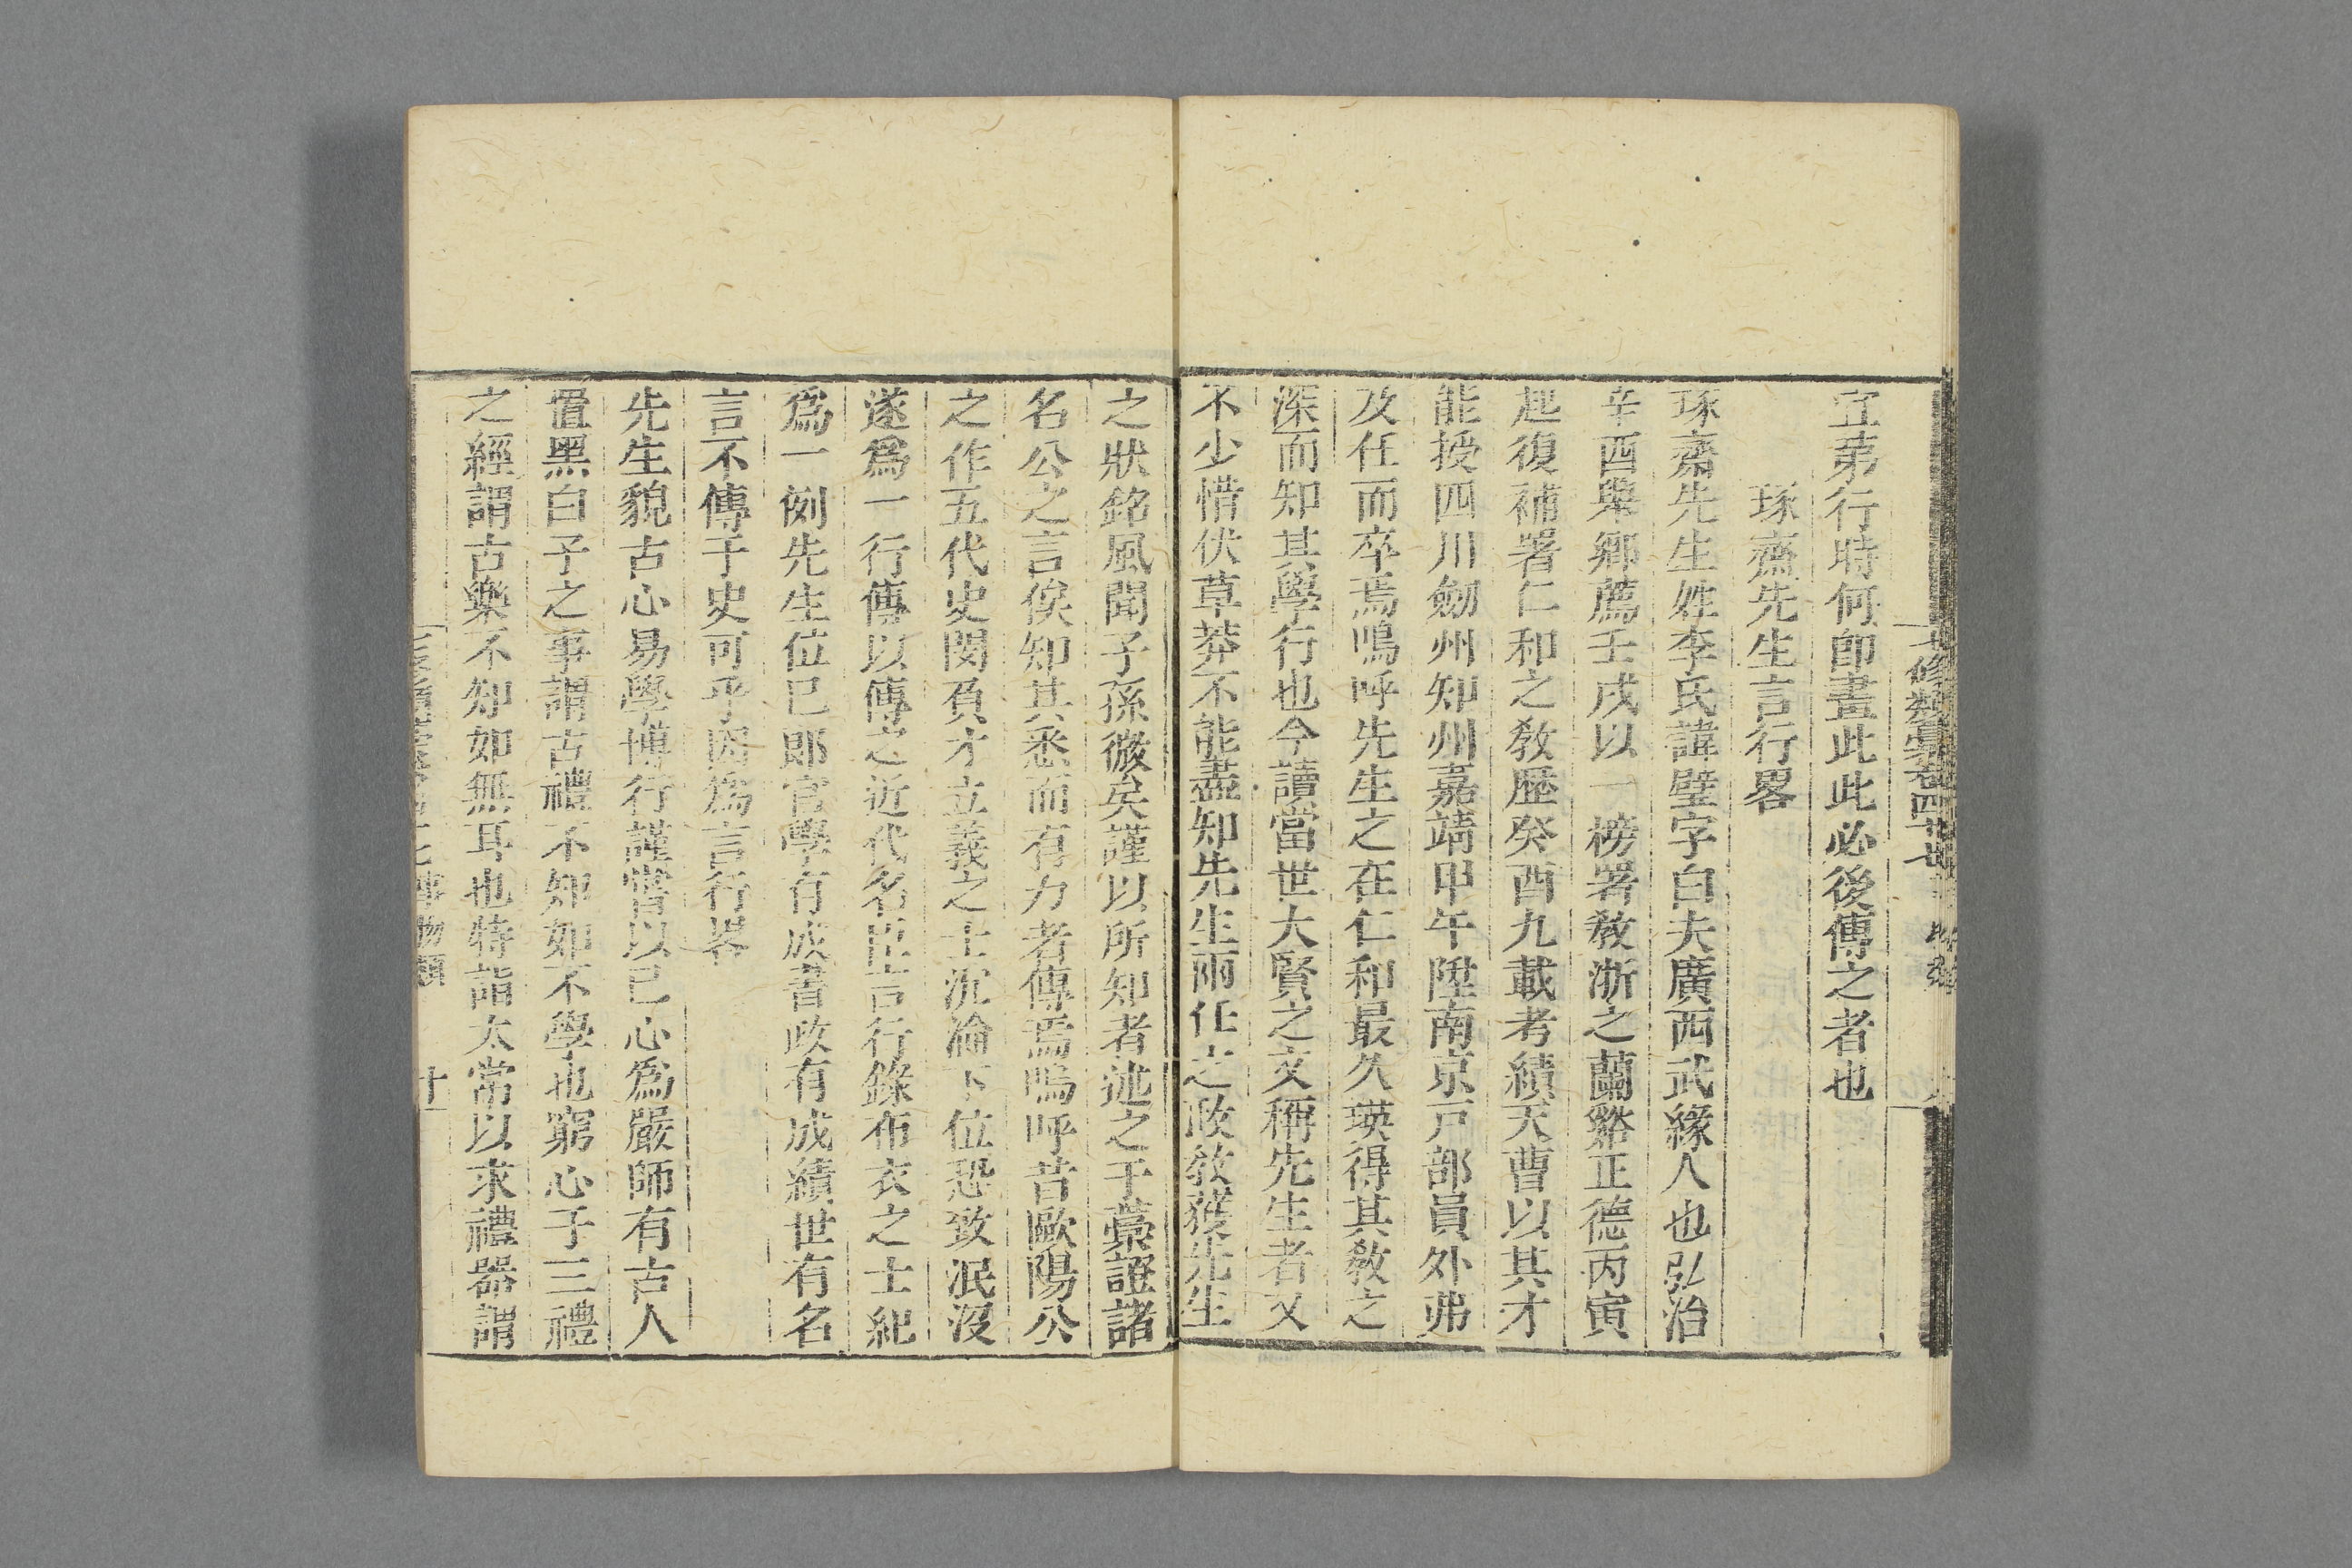 宜第行時何卽畫此此必後傳之者也
琢齋先生言行畧
琢齋先生姓李氏諱璧字白夫廣西武緣人也弘治
辛酉舉鄉薦壬戌以一榜署敎浙之蘭谿正德丙寅
起復補署仁和之敎歷癸酉九載考績天曹以其才
能授四川劒州知州嘉靖甲午陞南京戸部員外弗
及任而卒焉嗚呼先生之在仁和最久瑛得其敎之
深而知其學行也今讀當世大賢之文稱先生者又
不少惜伏草莽不能盡知先生兩任之政敎獲先生
之狀銘風聞子孫微矣謹以所知者述之于藁證諸
名公之言俟知其悉而有力者傳焉嗚呼昔歐陽公
之作五代史閔負才立義之士沉淪下位恐致泯沒
遂爲一行傳以傳之近代名臣言行錄布衣之士紀
爲一例先生位已郎官學有成書政有成績世有名
言不傳于史可乎因爲言行畧
先生貌古心易學博行謹嘗以已心爲嚴師有古人
置黑白子之事謂古禮不知如不學也窮心于三禮
之經謂古樂不知如無耳也特詣太常以求禮器謂
事物類